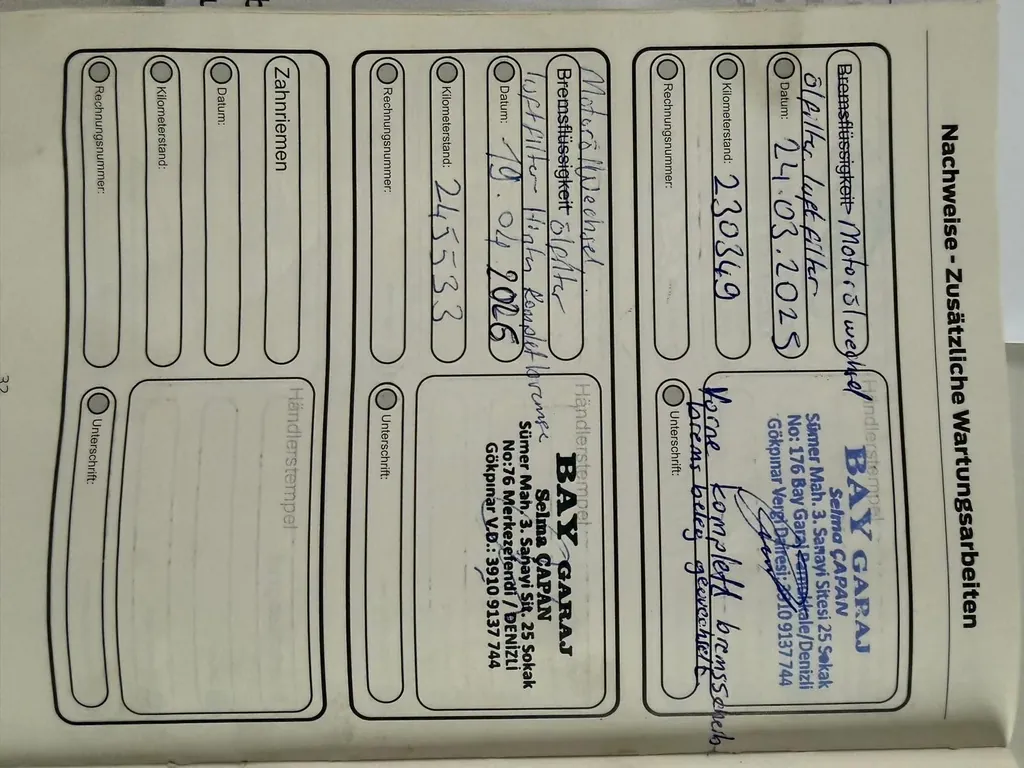 Nachweise - Zusätzliche Wartungsarbeiten
Bremsflüssigkeit Motorölwechsel
ölfilter luftfilter
Datum: 24.03.2025
Kilometerstand: 230349
Rechnungsnummer:
Händlerstempel
BAY GARAJ
Selma ÇAPAN
Sümer Mah. 3. Sanayi Sitesi 25 Sokak
No: 176 Bay Garaj Pamukkale/Denizli
Gökpınar Vergi Dairesi: 3910 9137 744
Vorne komplett bremsscheib
brems beleg gewechselt
Unterschrift:
Motoröl Wechsel
Bremsflüssigkeit ölfilter
luftfilter Hinten komplet bremse
Datum: 19.04.2026
Kilometerstand: 245533
Rechnungsnummer:
Händlerstempel
BAY GARAJ
Selma ÇAPAN
Sümer Mah. 3. Sanayi Sit. 25 Sokak
No:76 Merkezefendi / DENİZLİ
Gökpınar V.D.: 3910 9137 744
Unterschrift:
Zahnriemen
Datum:
Kilometerstand:
Rechnungsnummer:
Händlerstempel
Unterschrift:
32